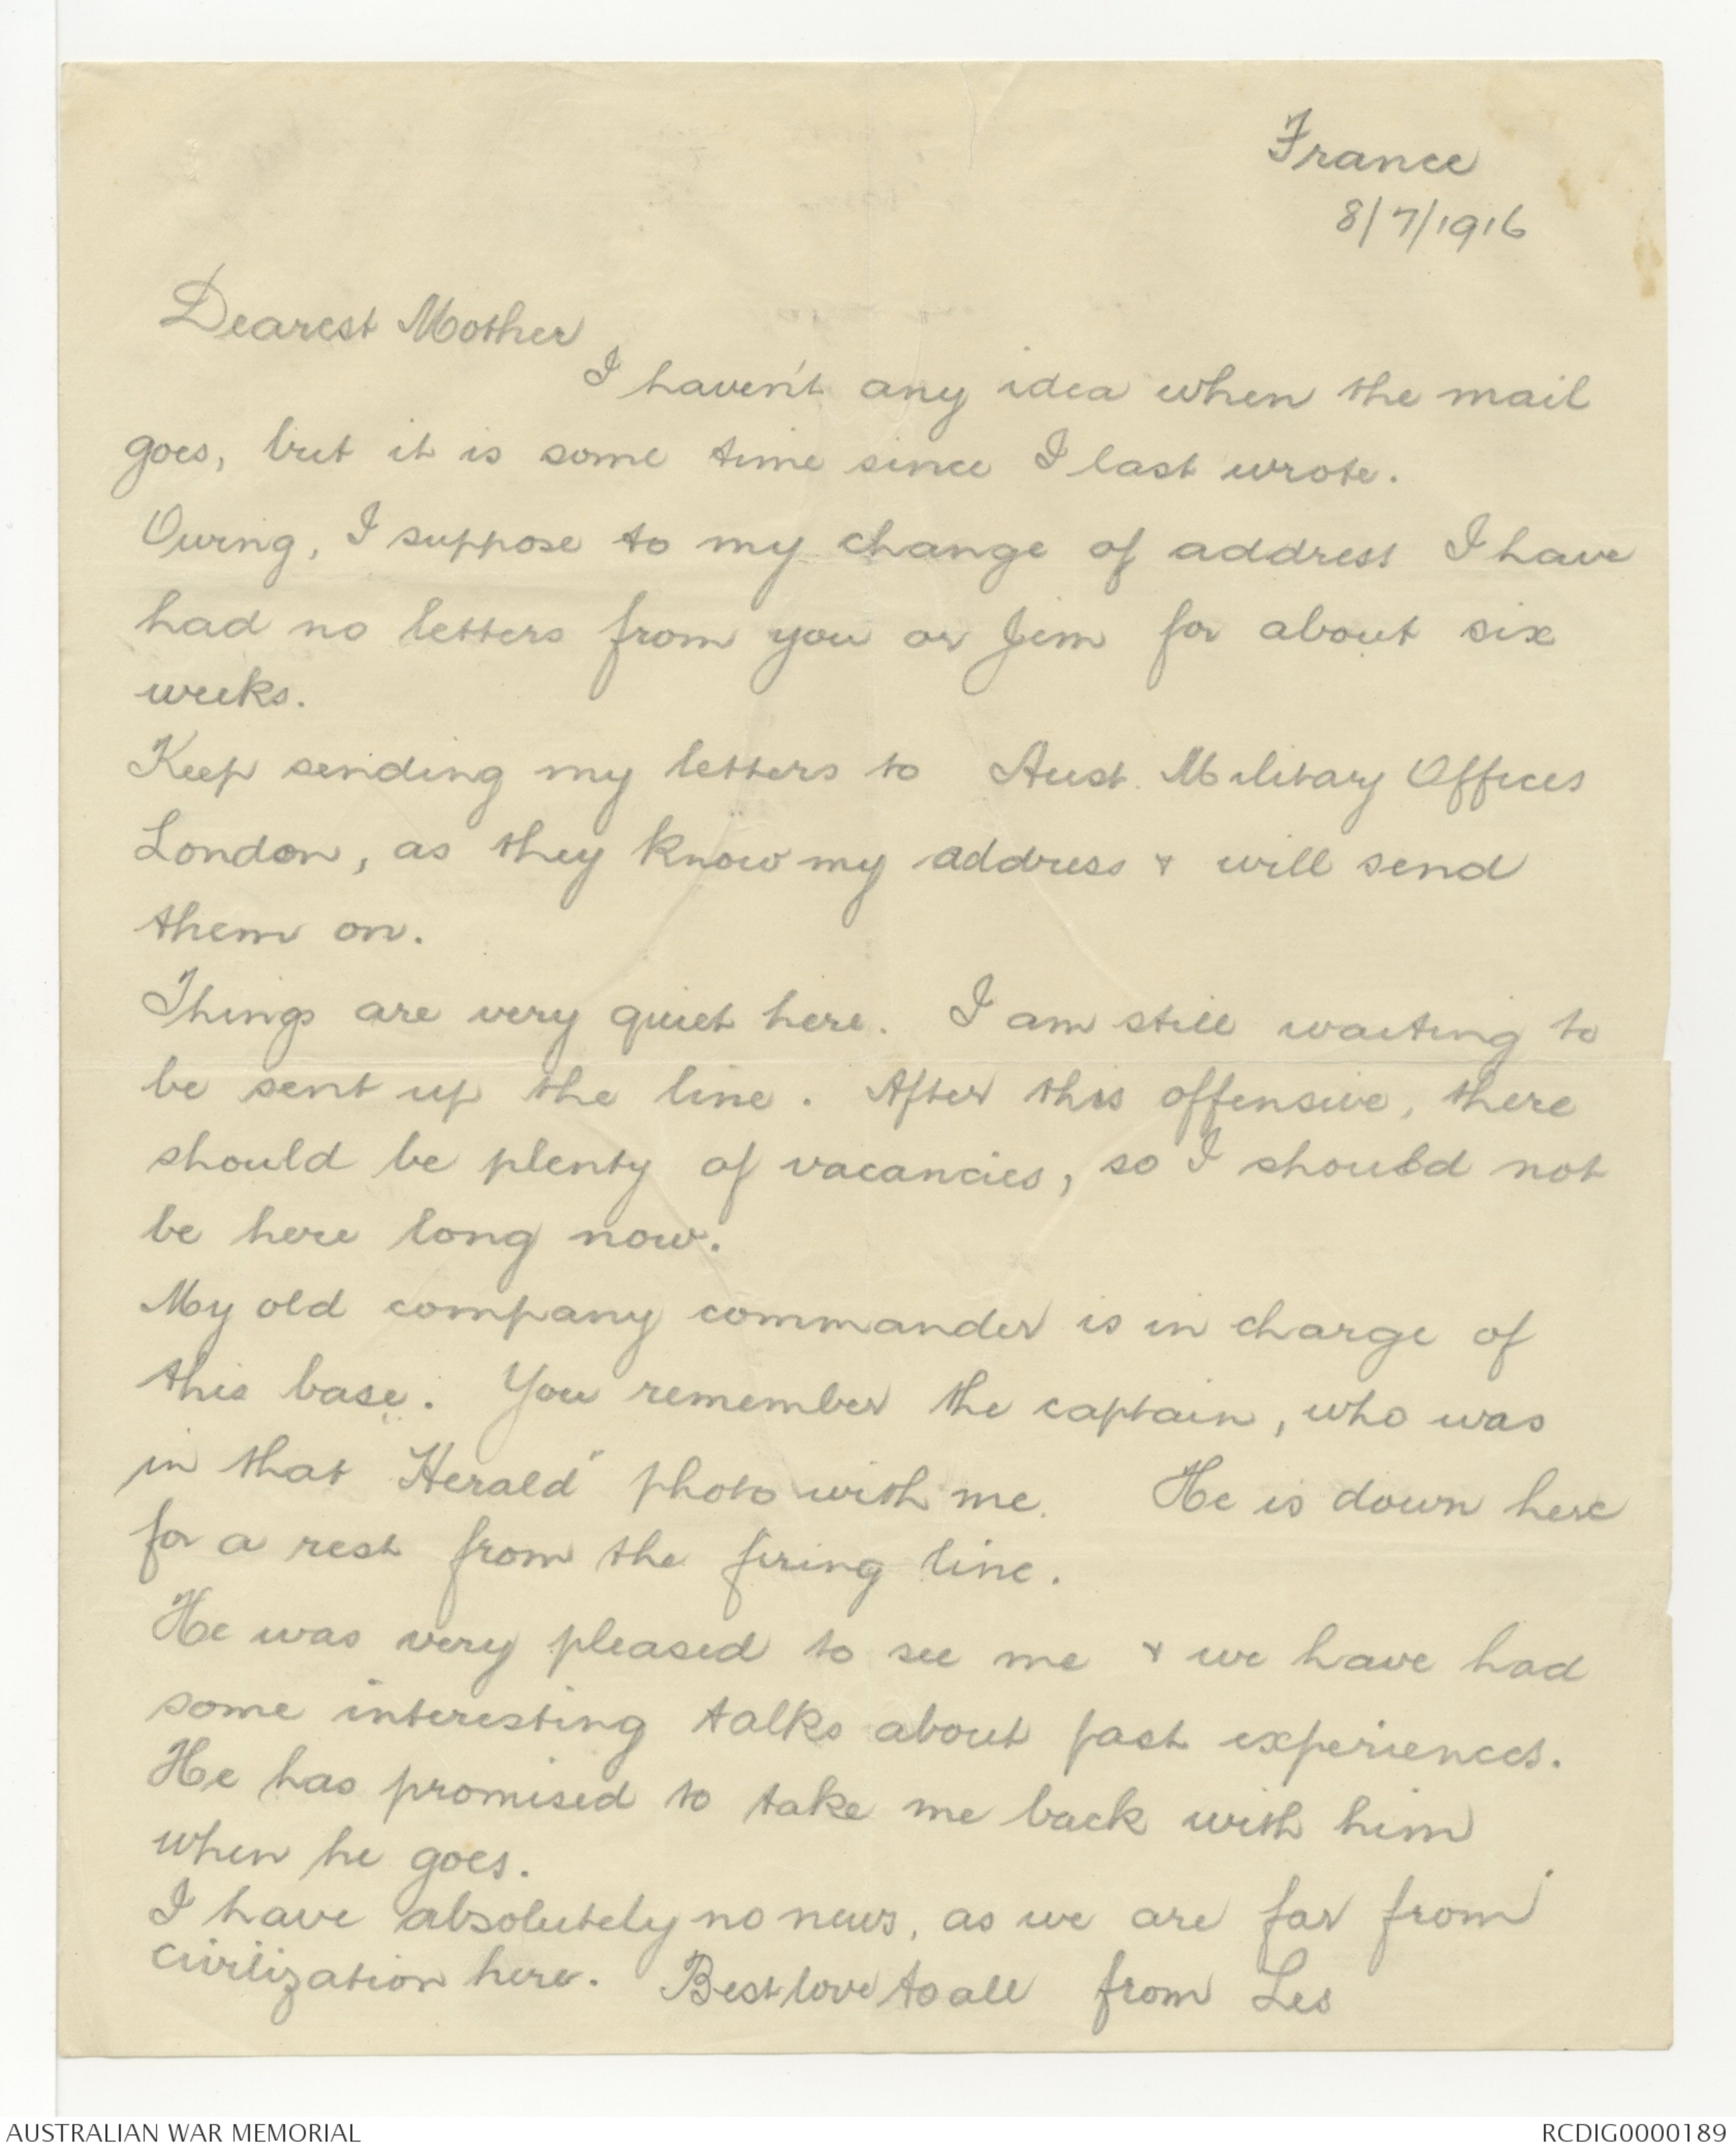 France
8/7/1916
Dearest Mother
I haven't any idea when the mail
goes, but it is some time since I last wrote.
Owing, I suppose to my change of address I have
had no letters from you or Jim for about six
weeks.
Keep sending my letters to Aust. Military Offices
London, as they know my address & will send
them on.
Things are very quiet here. I am still waiting to
be sent up the line. After this offensive, there
should be plenty of vacancies, so I should not
be here long now.
My old company commander is in charge of
this base. You remember the captain, who was
in that "Herald" photo with me. He is down here
for a rest from the firing line.
He was very pleased to see me & we have had
some interesting talks about past experiences.
He has promised to take me back with him
when he goes.
I have absolutely no news, as we are far from
civilization here. Best love to all from Les
AUSTRALIAN WAR MEMORIAL
RCDIG0000189